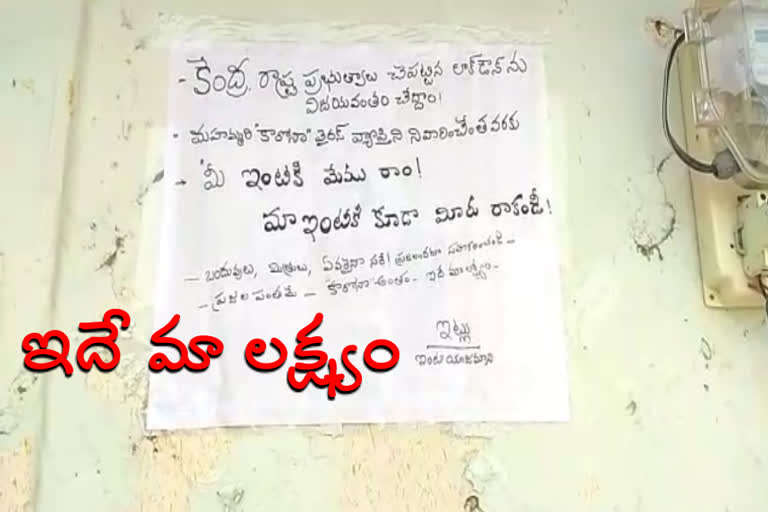 - కేంద్ర, రాష్ట్ర ప్రభుత్వాలు చేపట్టిన లాక్‌డౌన్ ను
విజయవంతం చేద్దాం!
• మహమ్మారి "కారోనా" వైరస్ వ్యాప్తిని నివారించేంతవరకు
→ "మీ ఇంటికి మేము రాం!
మా ఇంటికి కూడా మీరు రాకండి!
— బందువులు, మిత్రులు, ఎవరైనా సరే! ప్రజలందరూ సహకరించండి —
— ప్రజల పంతమే — కారోనా అంతం - ఇదే మా లక్ష్యం -
ఇట్లు
ఇంటి యజమాని
ఇదే మా లక్ష్యం